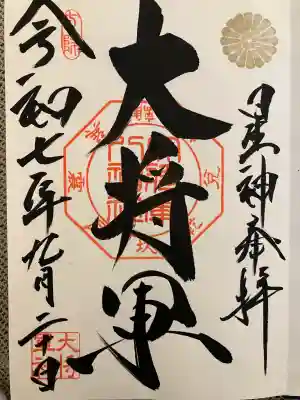 星神奉拝
大将軍
令和七年九月二十日
兌
震
坎